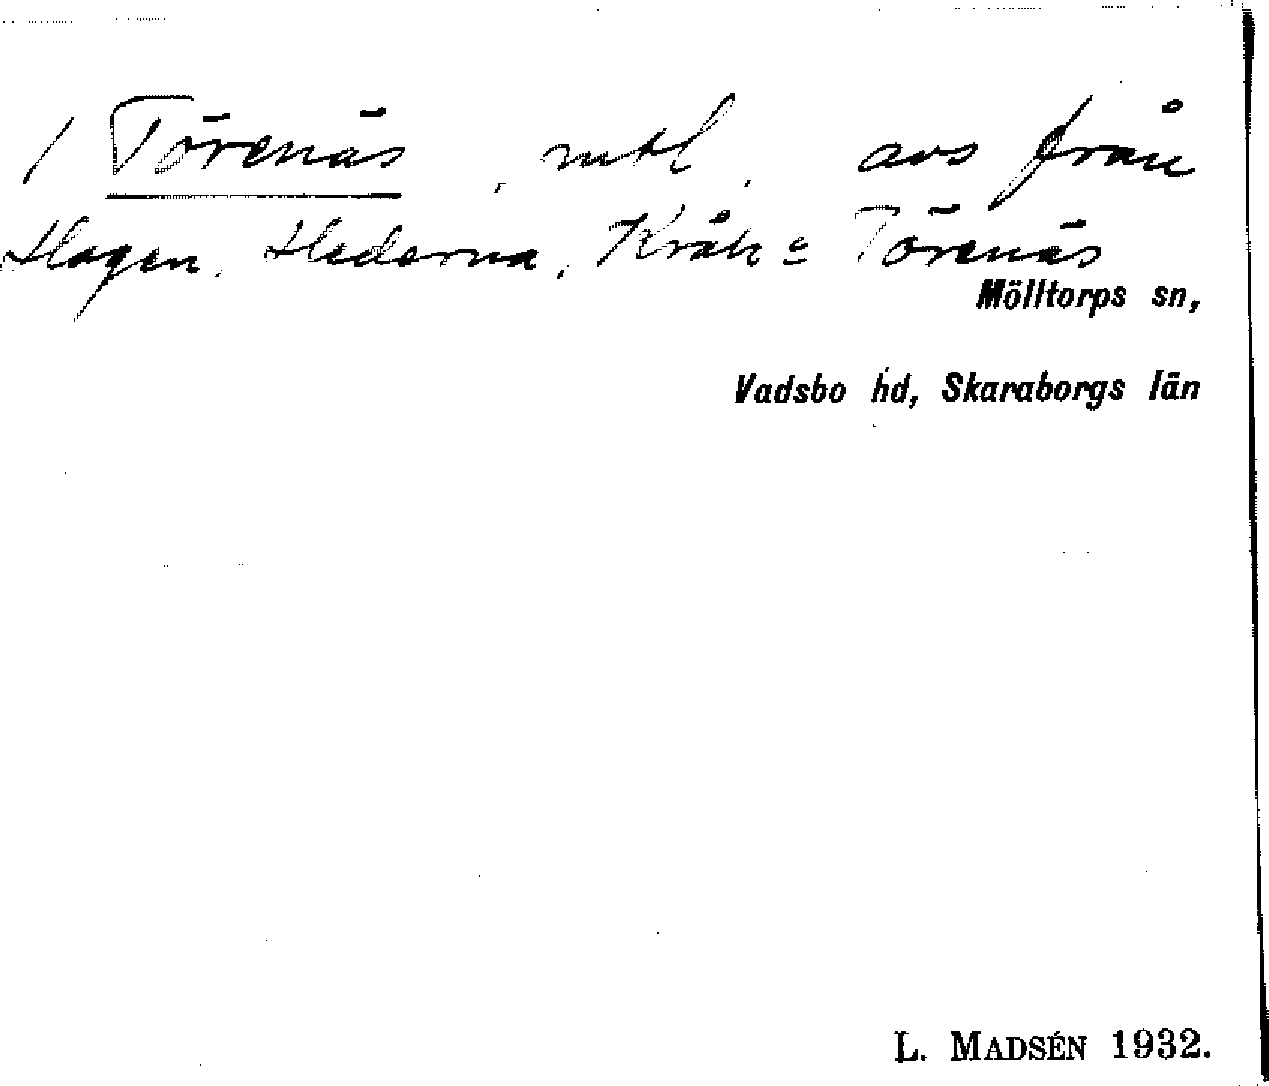 1 Törenäs, mtl, avs från
Hagen, Hederna, Kråk o Törenäs
Mölltorps sn,
Vadsbo hd, Skaraborgs län
L. MADSÉN 1932.